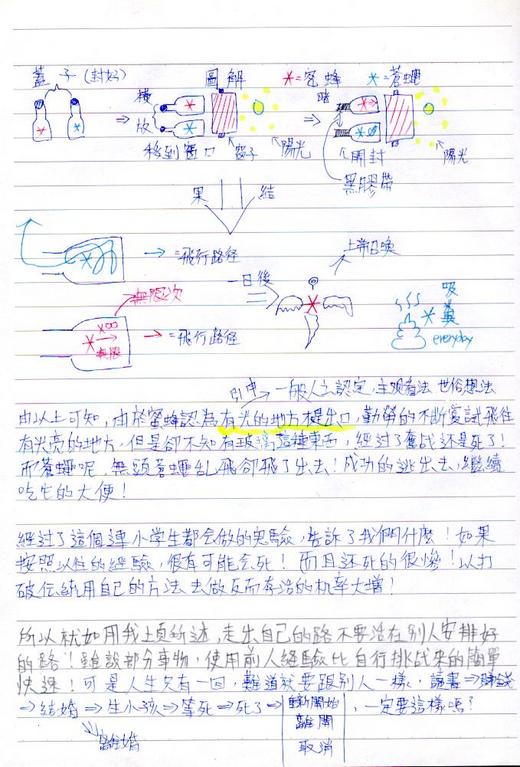 蓋子(封好)
圖解
*=蜜蜂 *=蒼蠅
橫放
⇒
移到窗口
窗子
陽光
⇒
暗
開封
黑膠帶
陽光
結果
→=飛行路徑
無限次
→=飛行路徑
一日後
上帝召喚
吸糞
everyday
引申→一般人之認定,主觀看法 世俗想法
由以上可知,由於蜜蜂認為有光的地方是出口,勤勞的不斷嘗試飛往
有光亮的地方,但是卻不知有玻璃這種東西,經過了奮戰還是死了!
而蒼蠅呢 無頭蒼蠅亂飛卻飛了出去!成功的逃出去,繼續
吃它的大便!
經過了這個連小學生都會做的実驗,告訴了我們什麼!如果
按照以往的經驗,很有可能会死! 而且还死的很慘!以打
破伝統用自己的方法去做反而存活的机率大增!
所以就如用我上頁所述,走出自己的路不要活在別人安排好
的路!雖說部分事物,使用前人經驗比自行挑战來的簡單
快速!可是人生只有一回,難道就要跟別人一様,讀書⇒賺錢
⇒結婚⇒生小孩⇒等死⇒死了⇒ 重新開始 離開 取消,一定要這様嗎?
離婚